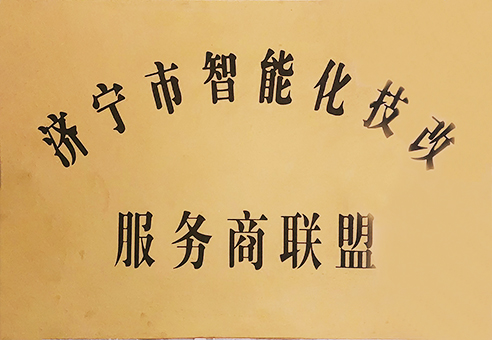 济宁市智能化技改
服务商联盟